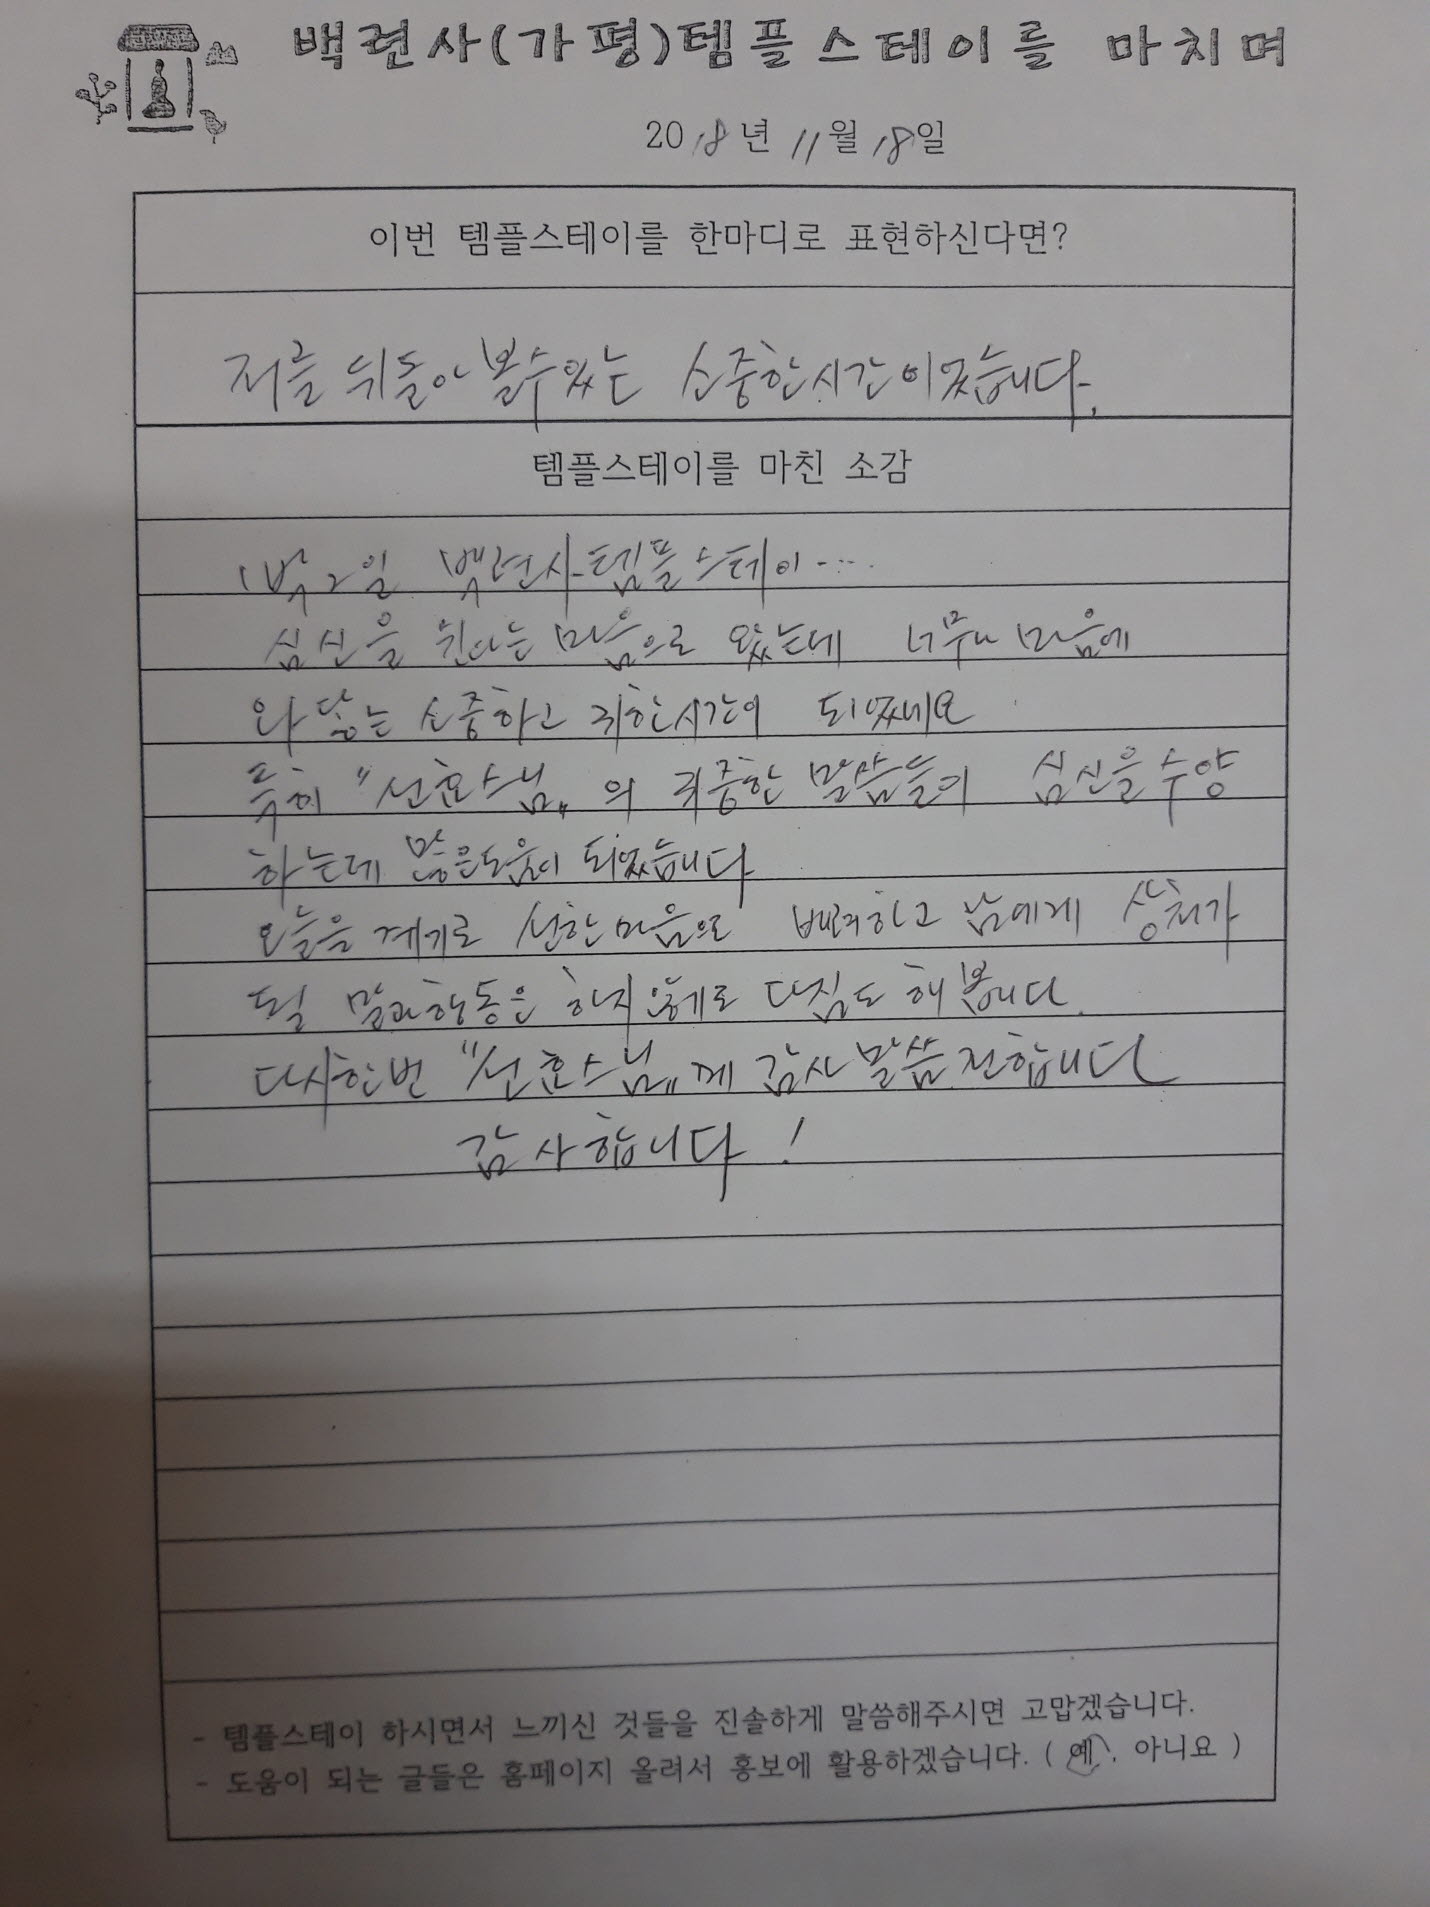 백련사(가평)템플스테이를 마치며
2018년 11월 18일
이번 템플스테이를 한마디로 표현하신다면?
저를 뒤돌아 볼수있는 소중한시간이었습니다.
템플스테이를 마친 소감
1박2일 백련사템플스테이.....
심신을 쉰다는 마음으로 왔는데 너무나 마음에
와닿는 소중하고 귀한시간이 되었네요
특히 "선효스님"의 귀중한 말씀들이 심신을수양
하는데 많은도움이 되었습니다
오늘을 계기로 선한마음으로 배려하고 남에게 상처가
될 말과행동은 하지않게로 다짐도 해봅니다.
다시한번 "선효스님"께 감사말씀전합니다
감사합니다!
- 템플스테이 하시면서 느끼신 것들을 진솔하게 말씀해주시면 고맙겠습니다.
- 도움이 되는 글들은 홈페이지 올려서 홍보에 활용하겠습니다. ( 예, 아니요 )